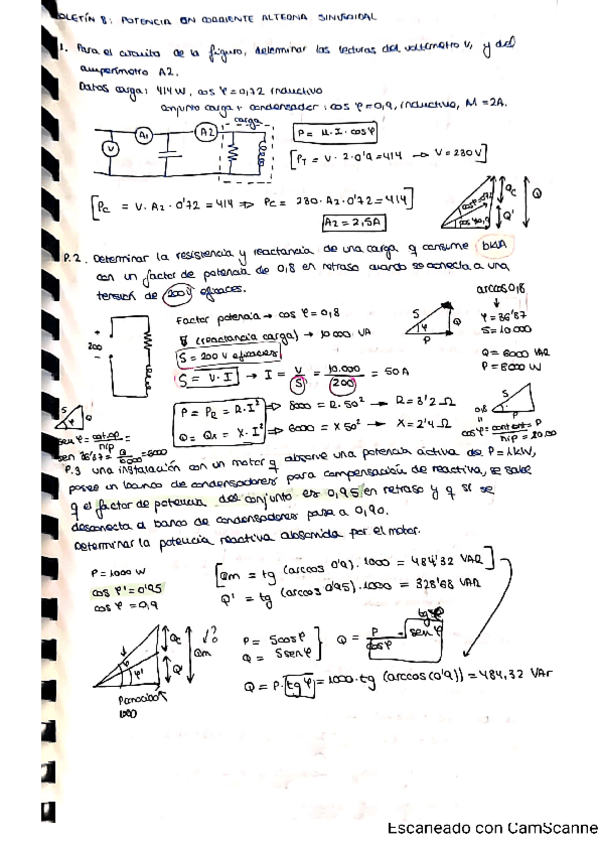 OLETÍN 8: POTENCIA EN CORRIENTE ALTERNA SINUSOIDAL
1. Para el circuito de la figura, determinar las lecturas del voltímetro V, y del
amperímetro A2.
Datos carga: 414W, cos φ = 0,72 inductivo
conjunto carga + condensador: cos φ = 0,9, inductivo, M = 2A.
carga
V A1 A2
P = U·I·cosφ
[PT = V·2·0'9 = 414 → V = 230V]
[PC = V·A2·0'72 = 414 ⇒ PC = 230·A2·0'72 = 414]
A2 = 2,5A
QC Q Q'
P.2. Determinar la resistencia y reactancia de una carga q consume
con un factor de potencia de 0,8 en retraso cuando se conecta a una
tensión de 200V eficaces.
arccos 0,8
Factor potencia → cos φ = 0,8
(reactancia carga) → 10000 VA
S = 200 V eficaces
S φ Q P
φ = 36'87
S = 10000
Q = 6000 VAR
P = 8000 W
+ 200 -
S = V·I → I = V/S = 10.000/200 = 50A
P = PR = R·I² ⇒ 8000 = R·50² → R = 3'2 Ω
Q = QX = X·I² ⇒ 6000 = X·50² → X = 2'4 Ω
S φ Q
sen φ = cat.op/hip
sen 36'87 = Q = 6000
S P
0,8
cos φ = cont = P
hip = 10.000
P.3 una instalación con un motor q absorve una potencia activa de P = 1kW,
posee un banco de condensadores para compensación de reactiva, se sabe
q el factor de potencia del conjunto es 0,95 en retraso y q si se
desconecta el banco de condensadores pasa a 0,90.
Determinar la potencia reactiva absorbida por el motor.
P = 1000 W
cos φ' = 0'95
cos φ = 0,9
[Qm = tg (arccos 0'9)·1000 = 484'32 VAR]
Q' = tg (arccos 0'95)·1000 = 328'68 VAR
φ φ' QC Q' Qm ¿?
P conocido
1000
P = S cosφ
Q = S senφ
Q = P/cosφ · senφ
tgφ
Q = P·tgφ = 1000·tg (arccos(0'9)) = 484,32 VAr
Escaneado con CamScanne